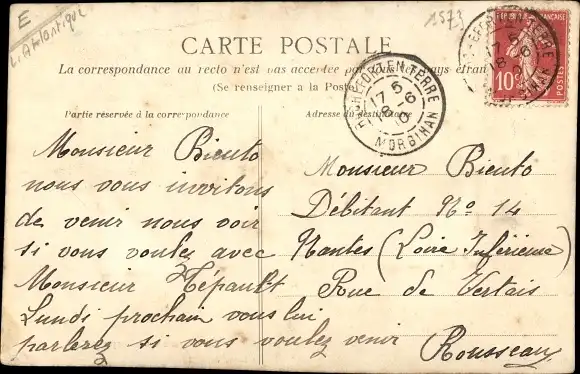 E
L'Atlantique
1573
CARTE POSTALE
La correspondance au recto n'est pas acceptée par pays étran
(Se renseigner à la Poste)
Partie réservée à la correspondance
Adresse du destinataire
FRANÇAISE
10
POSTES
ROCHEFORT-EN-TERRE
17
MORBIHAN
Monsieur Biento
nous vous invitons
de venir nous voir
si vous voulez avec
Monsieur Tépault
Lundi prochain vous lui
parlerez si vous voulez venir
Monsieur Biento
Débitant No 14
Nantes (Loire Inférieure)
Rue de Vertais
Rousseau